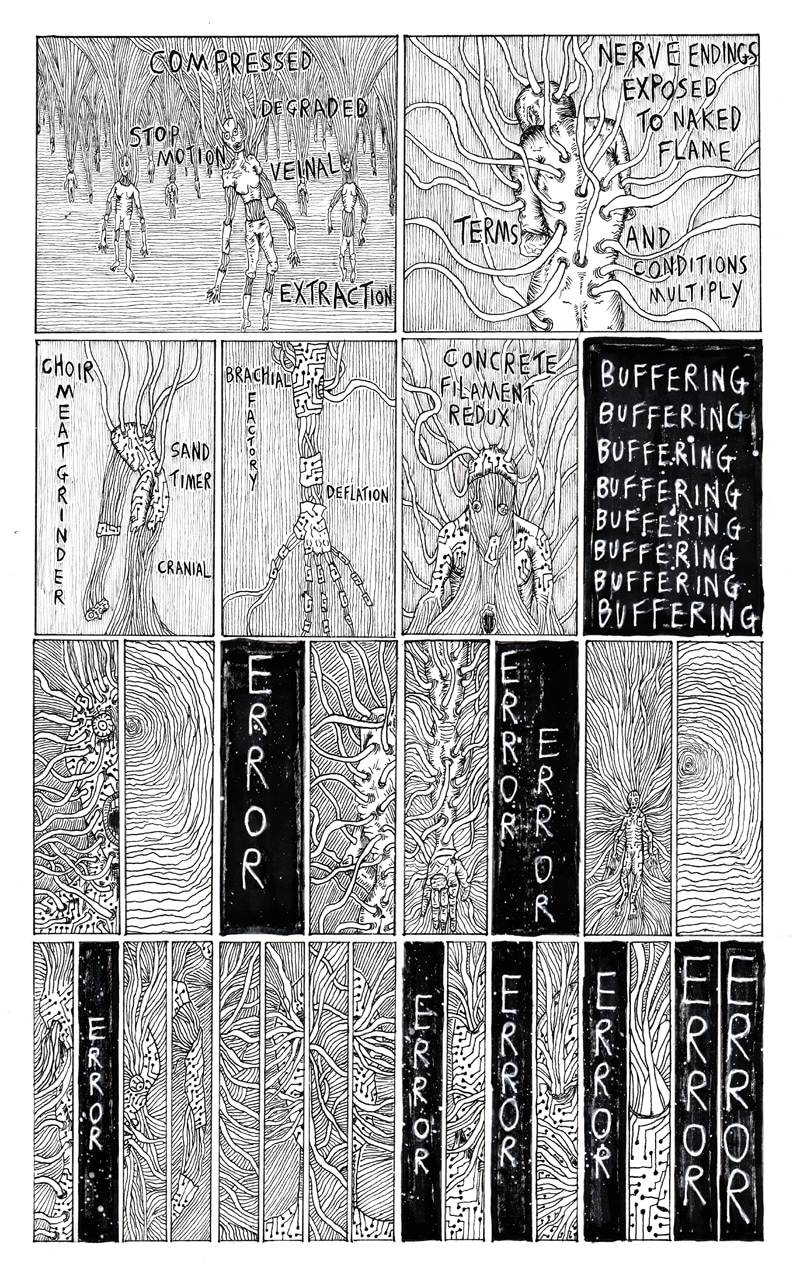 COMPRESSED
DEGRADED
STOP
MOTION
VEINAL
EXTRACTION
NERVE ENDINGS
EXPOSED
TO NAKED
FLAME
TERMS AND
CONDITIONS
MULTIPLY
CHOIR
MEATGRINDER
SAND
TIMER
CRANIAL
BRACHIAL
FACTORY
DEFLATION
CONCRETE
FILAMENT
REDUX
BUFFERING
BUFFERING
BUFFERING
BUFFERING
BUFFERING
BUFFERING
BUFFERING
BUFFERING
ERROR
ERROR
ERROR
ERROR
ERROR
ERROR
ERROR
ERROR
ERROR